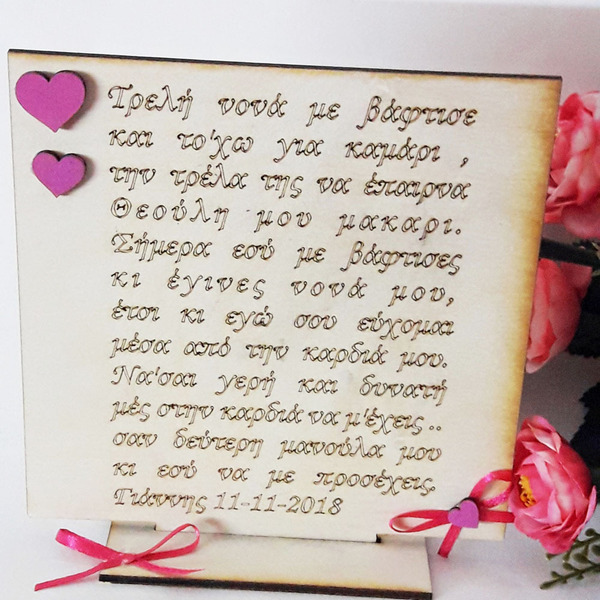 Τρελή νονά με βάφτισε
και το'χω για καμάρι ,
την τρέλα της να έπαιρνα
Θεούλη μου μακαρι.
Σήμερα εσύ με βάφτισες
κι έγινες νονά μου,
έτσι κι εγώ σου εύχομαι
μέσα από την καρδιά μου.
Να'σαι γερή και δυνατή
μές στην καρδιά να μ'έχεις..
σαν δεύτερη μανούλα μου
κι εσύ να με προσέχεις.
Γιάννης 11-11-2018